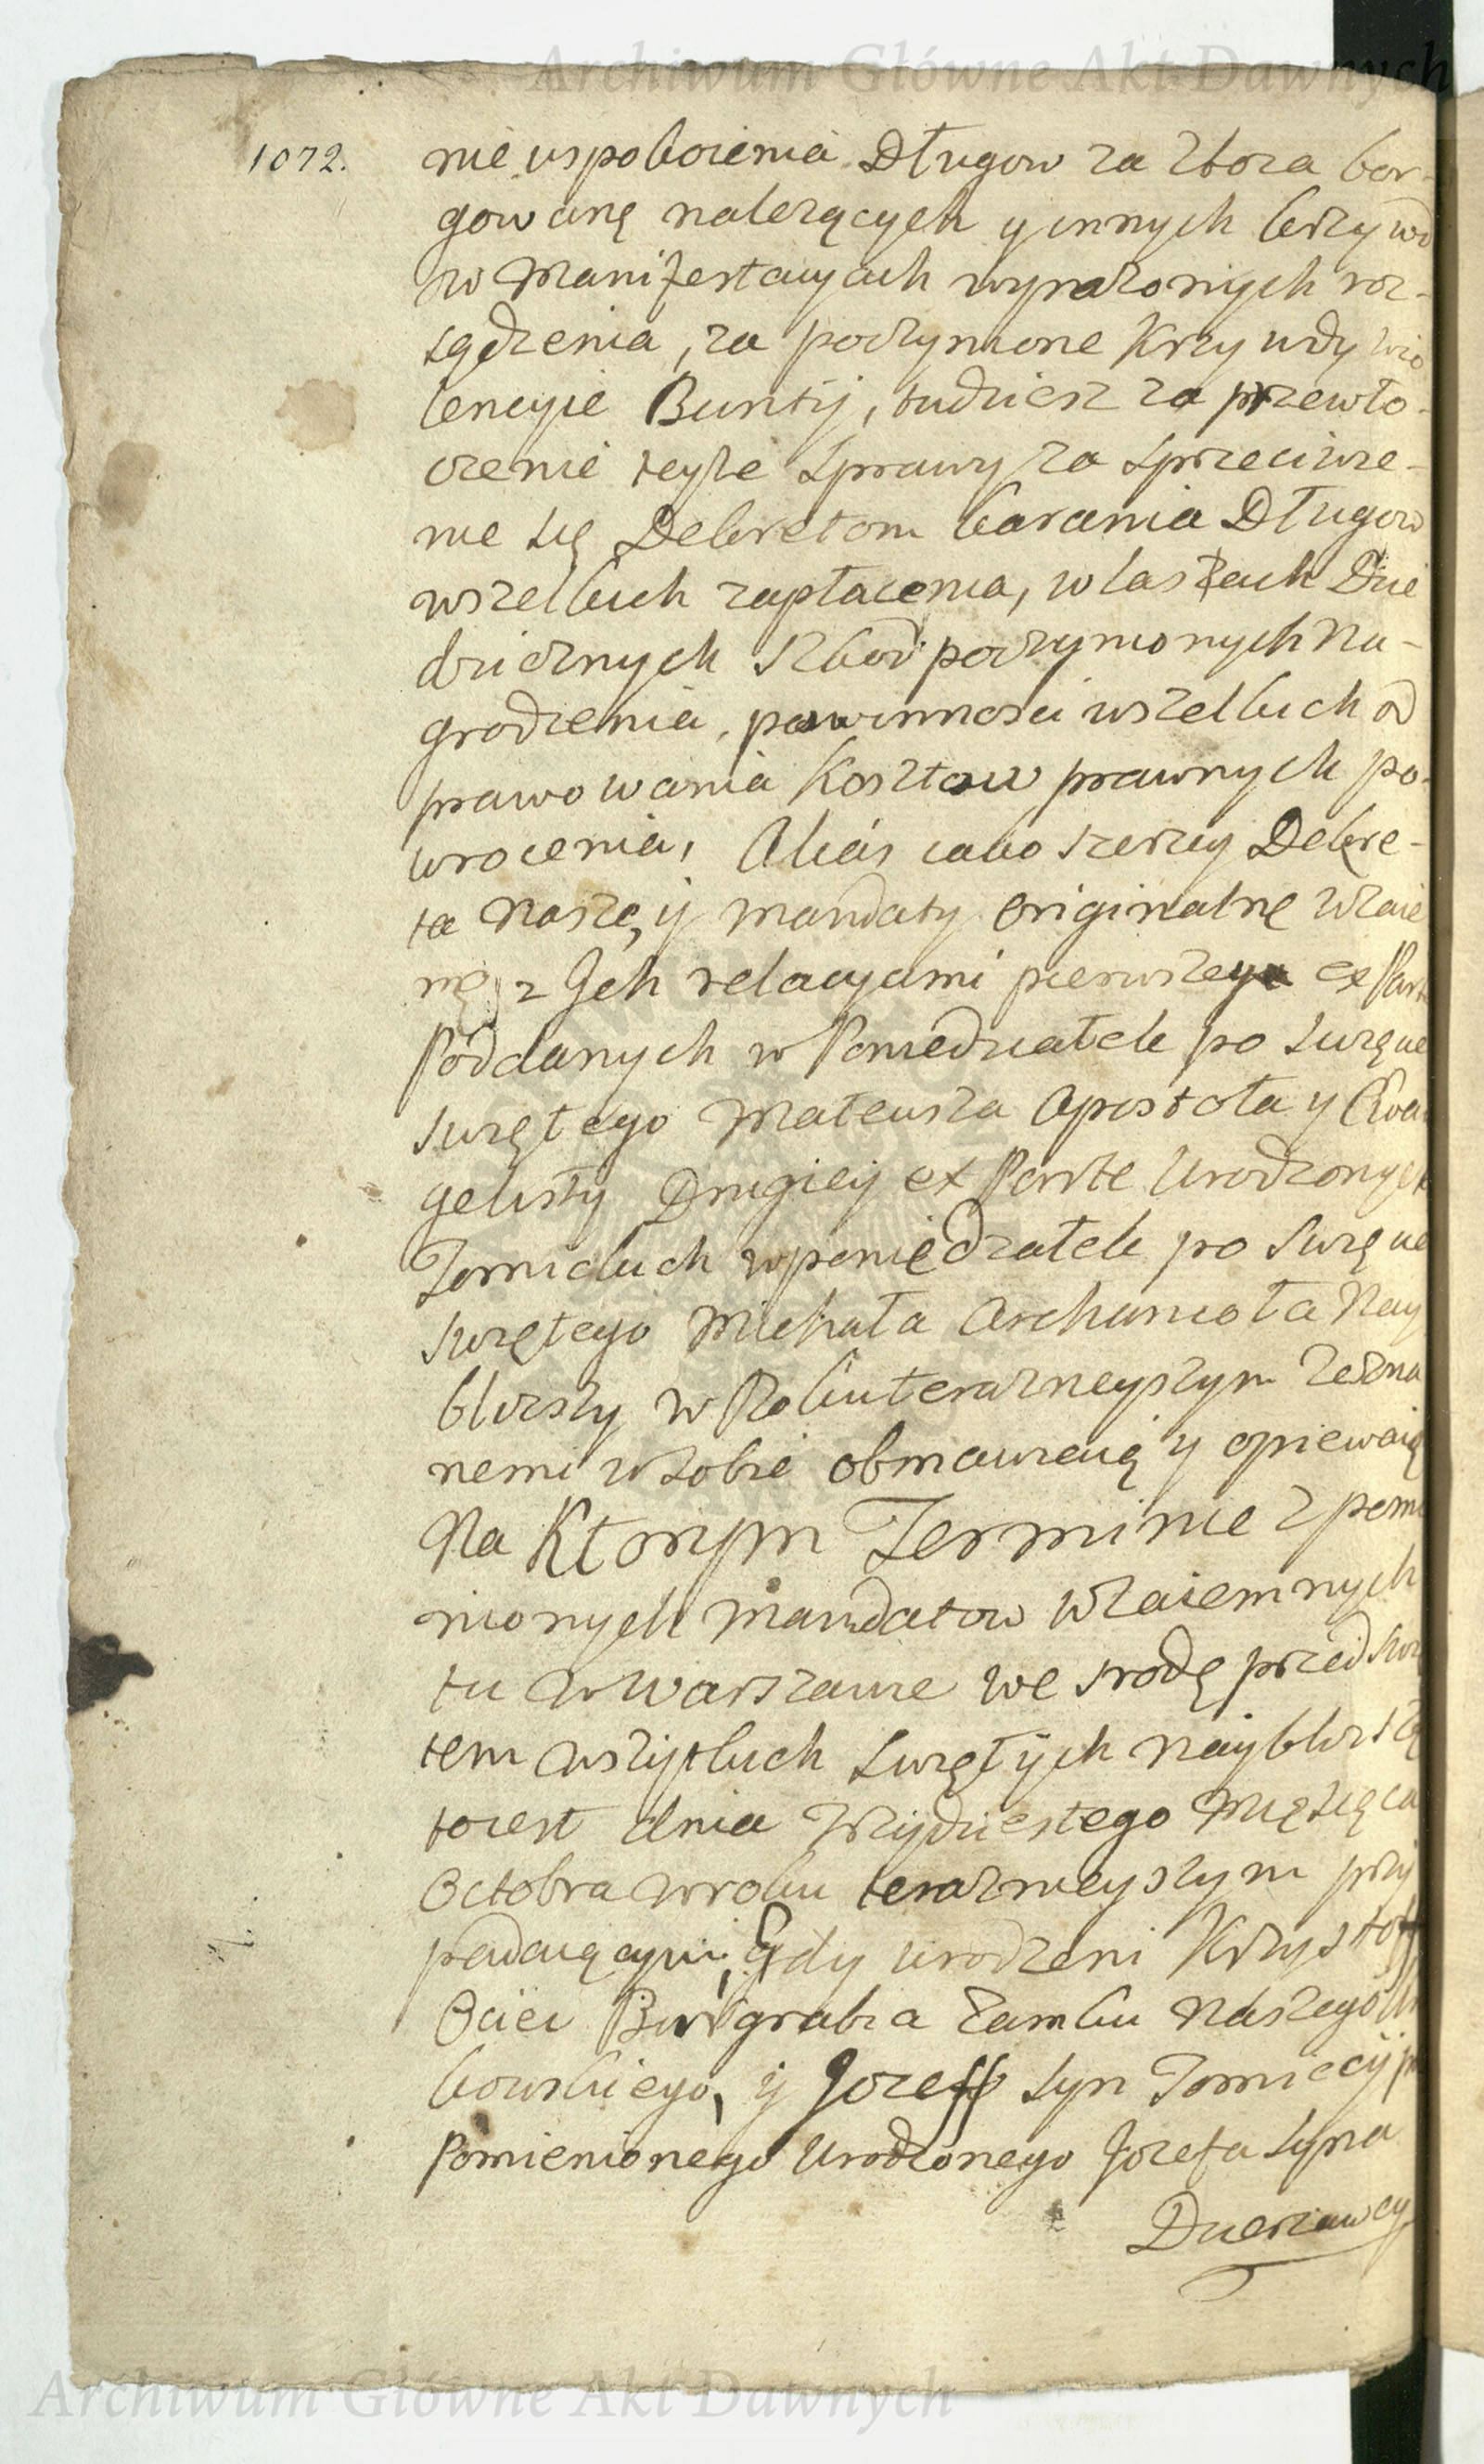 Archiwum Główne Akt Dawnych
1072.
nie uspokoienia Długow za zboza bor-
gowanę nalezących y innych krzywd
w Manifestacyach wyrazonych roz-
sądzenia, za poczynione Krzywdy wio
lencyie Bunty, tudziesz za przewło-
czenie teyze sprawy za sprzeciwie-
nie się Dekretom karania Długow
wszelkich zapłacenia, w lasach Dzie
dzicznych szkod poczynionych Na-
grodzenia, powinnosci wszelkich od
prawowania Kosztow prawnych po-
wrocenia, Aliàs iako szerzey Dekre-
ta Nasze, y mandaty originalnę wzaie
mę z Ich relacyami pierwszego ex Part
Poddanych w Poniedziałek po Swięcie
swiętego Mateusza Apostoła y Ewa
gelisty Drugiey ex Parte Urodzonych
Tomickich w poniedziałek po Swięcie
swiętego Michała Archanioła Nay
blizszy w Roku terazneyszym zezna
nemi w sobie obmawiaią y opiewaią
Na Ktorym Terminie z pomi
nionych mandatow wzaiemnych
tu w Warszawie we srodę przed Swię
tem wszytkich Swiętych nayblizszą
toiest dnia Trzydziestego Mięsiąca
Octobra w roku terazneyszym przy
padaiącym, Gdy urodzeni Krzysztoff
Ociec Burgrabia Zamku Naszego
kowskiego, y Jozeff syn Tomiccy
Pomienionego Urodzonego Jozefa syna
Dzierzawcy
Archiwum Główne Akt Dawnych